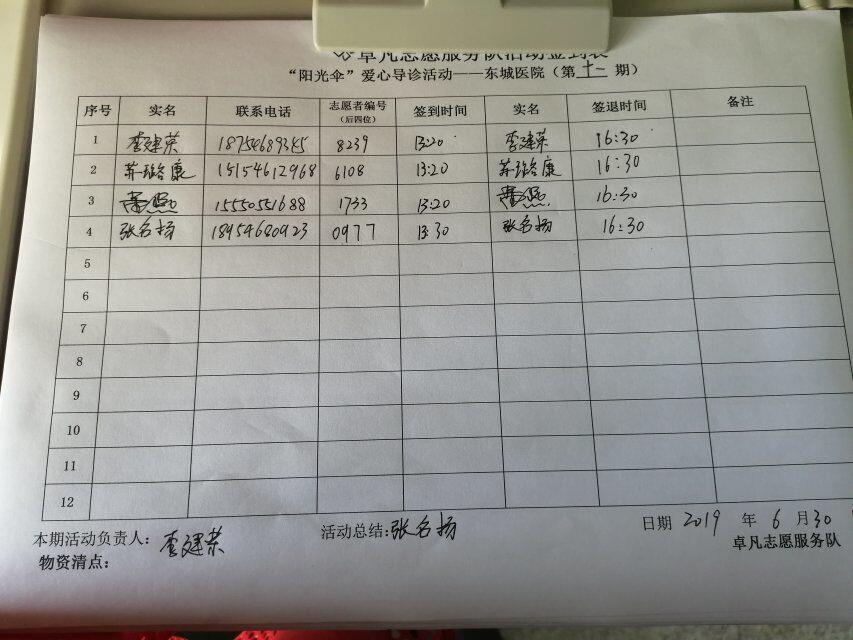 卓凡志愿服务队活动签到表
“阳光伞”爱心导诊活动——东城医院（第十一期）
序号 实名 联系电话 志愿者编号（后四位） 签到时间 实名 签退时间 备注
1 李建荣 18754689345 8239 13:20 李建荣 16:30
2 苏维康 15154612968 6108 13:20 苏维康 16:30
3 15550551688 1733 13:20 16:30
4 张名扬 18954680923 0977 13:30 张名扬 16:30
5
6
7
8
9
10
11
12
本期活动负责人：李建荣 活动总结：张名扬 日期 2019 年 6 月 30
物资清点： 卓凡志愿服务队